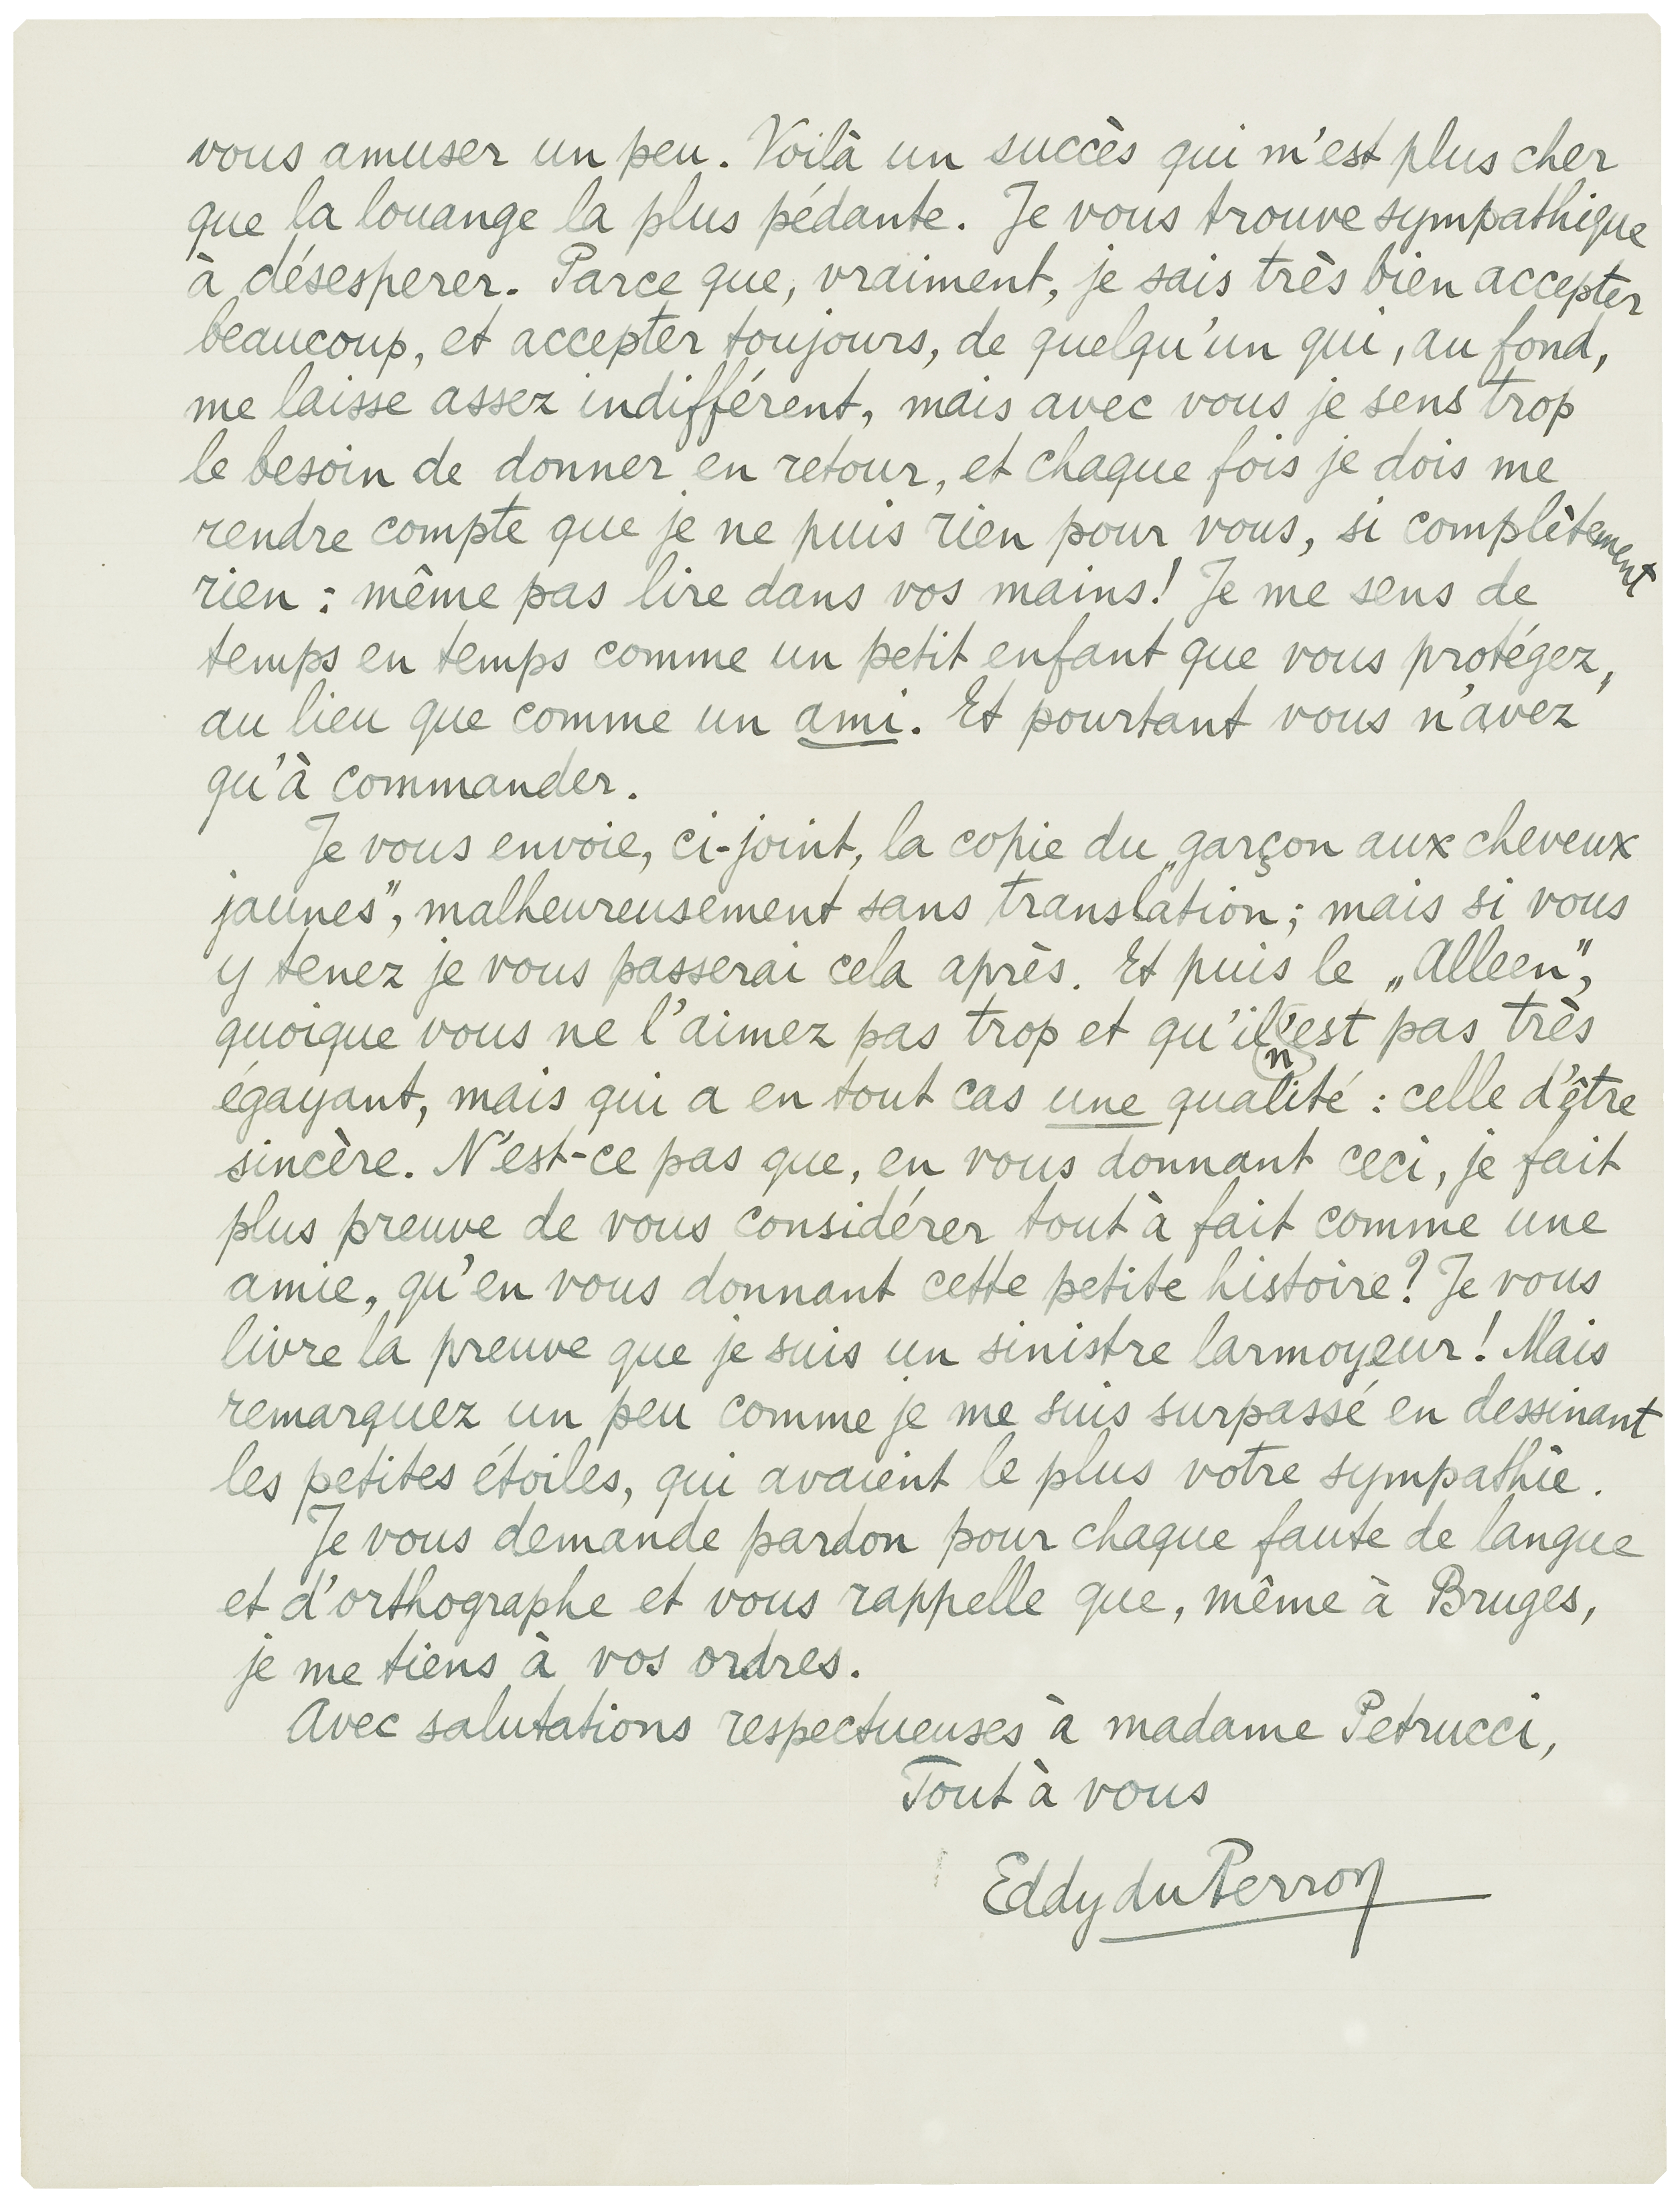 vous amuser un peu. Voilà un succès qui m'est plus cher
que la louange la plus pédante. Je vous trouve sympathique
à désesperer. Parce que, vraiment, je sais très bien accepter
beaucoup, et accepter toujours, de quelqu'un qui, au fond,
me laisse assez indifférent, mais avec vous je sens trop
le besoin de donner en retour, et chaque fois je dois me
rendre compte que je ne puis rien pour vous, si complètement
rien : même pas lire dans vos mains! Je me sens de
temps en temps comme un petit enfant que vous protégez,
au lieu que comme un ami. Et pourtant vous n'avez
qu'à commander.
Je vous envoie, ci-joint, la copie du „garçon aux cheveux
jaunes”, malheureusement sans translation; mais si vous
y tenez je vous passerai cela après. Et puis le „Alleen”,
quoique vous ne l'aimez pas trop et qu'il n'est pas très
égayant, mais qui a en tout cas une qualité : celle d'être
sincère. N'est-ce pas que, en vous donnant ceci, je fait
plus preuve de vous considérer tout à fait comme une
amie, qu'en vous donnant cette petite histoire? Je vous
livre la preuve que je suis un sinistre larmoyeur! Mais
remarquez un peu comme je me suis surpassé en dessinant
les petites étoiles, qui avaient le plus votre sympathie.
Je vous demande pardon pour chaque faute de langue
et d'orthographe et vous rappelle que, même à Bruges,
je me tiens à vos ordres.
Avec salutations respectueuses à madame Petrucci,
Tout à vous
Eddy du Perron